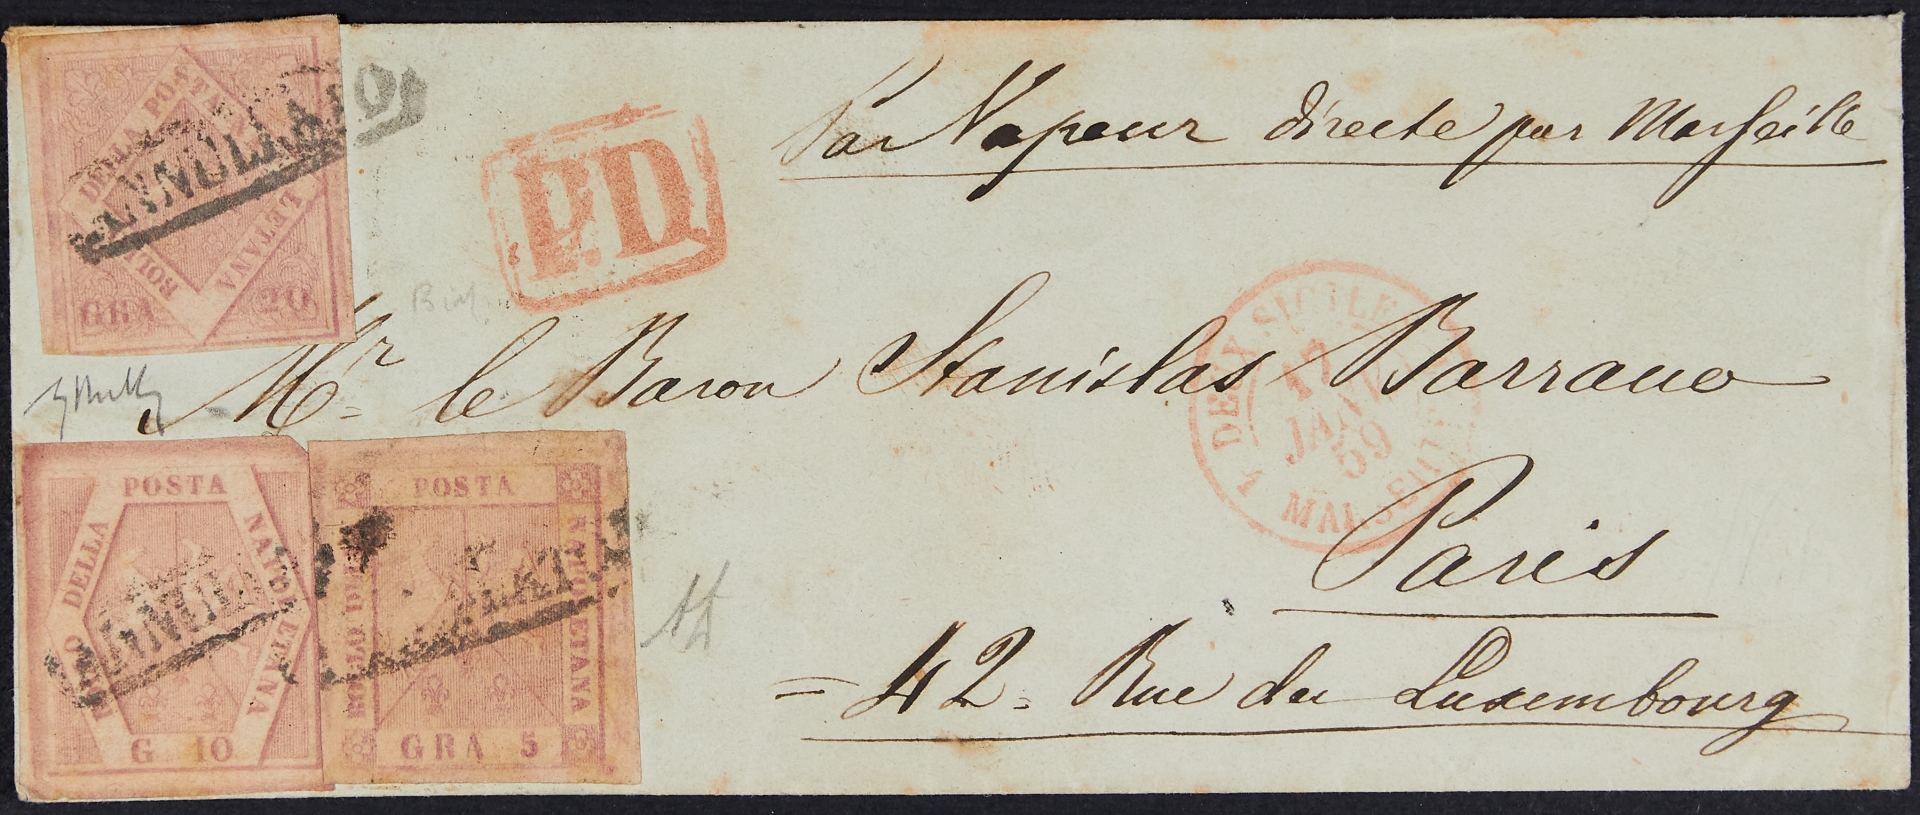 Par Vapeur directe par Marseille
BOLLO DELLA POSTA NAPOLETANA
GRA 20
ANNULLATO
P.D
Mr le Baron Stanislas Barraco
2 DEUX-SICILES
17
JANV.
59
MARSEILLE
Paris
= 42 = Rue du Luxembourg
BOLLO DELLA POSTA NAPOLETANA
G 10
ANNULLATO
BOLLO DELLA POSTA NAPOLETANA
GRA 5
ANNULLATO